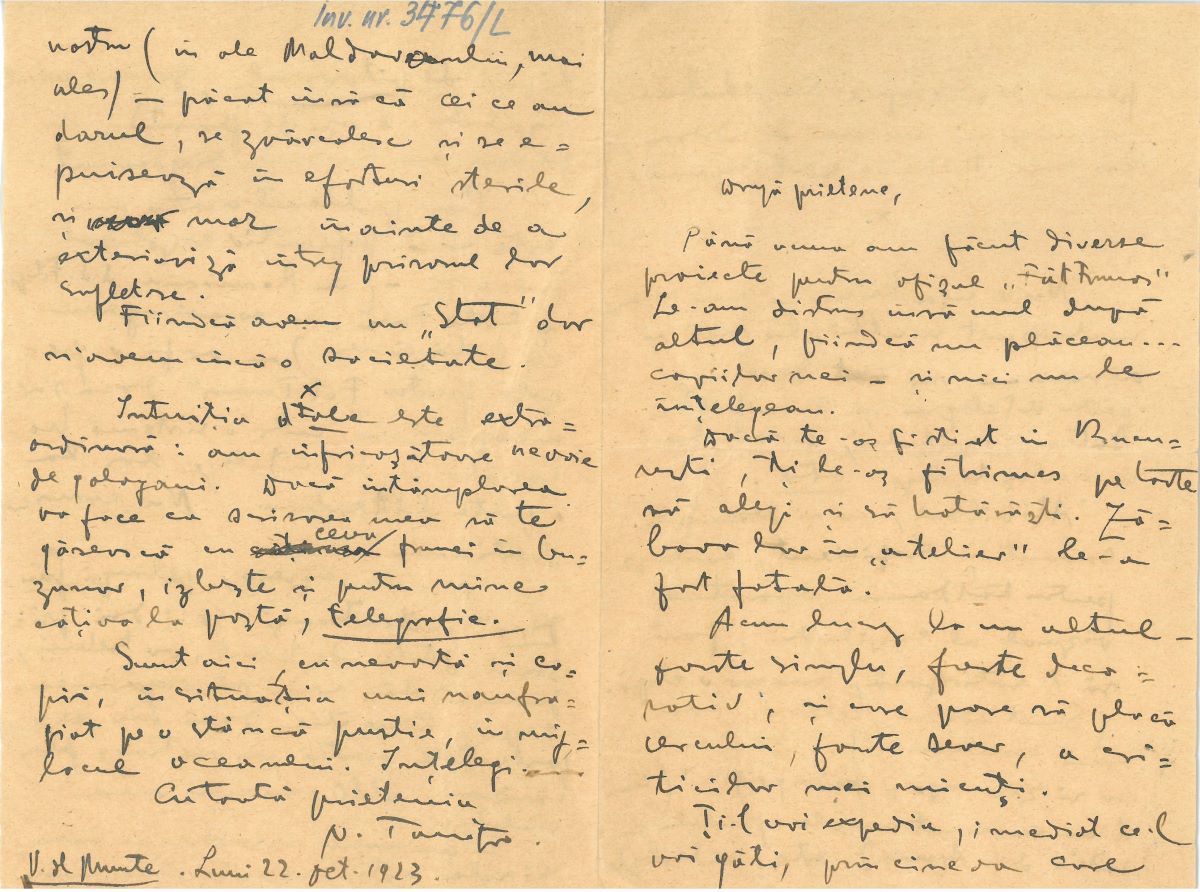 Inv. nr. 3476/L
nostru (în ale Moldoveanului, mai
ales) – păcat însă că cei ce au
darul, se zvârcolesc și se e=
puisează în eforturi sterile,
și mor înainte de a
exterioriză întreg prisosul lor
sufletesc.
Fiindcă avem un „Stat” dar
n'avem încă o societate.
Intuiția d tale este extra=
ordinară: am înfricoșătoare nevoie
de gologani. Dacă întâmplarea
va face ca scrisoarea mea să te
găsească cu ceva franci în bu=
zunar, izbește și pentru mine
câțiva la poștă, telegrafic.
Sunt aici, cu nevastă și co=
pii, în situația unui naufra=
giat pe o stâncă pustie, în mij=
locul oceanului. Înțelegi....
Cu toată prietenia
N. Tonitza.
V. de Munte. Luni 22. oct. 1923.
Dragă prietene,
Până acuma am făcut diverse
proiecte pentru afișul „Făt Frumos”
Le-am distrus însă unul după
altul, fiindcă nu plăceau...
copiilor mei – și nici nu le
înțelegeau.
Dacă te-aș fi știut în Bucu=
rești, ți le-aș fi trimes pe toate
să alegi și să hotărăști. Ză=
bava lor în „atelier” le-a
fost fatală.
Acum lucrez la un altul –
foarte simplu, foarte deco=
rativ, și care pare să placă
cercului, foarte sever, a cri=
ticilor mei micuți.
Ți-l voi expedia, imediat ce-l
voi găti, prin cineva care